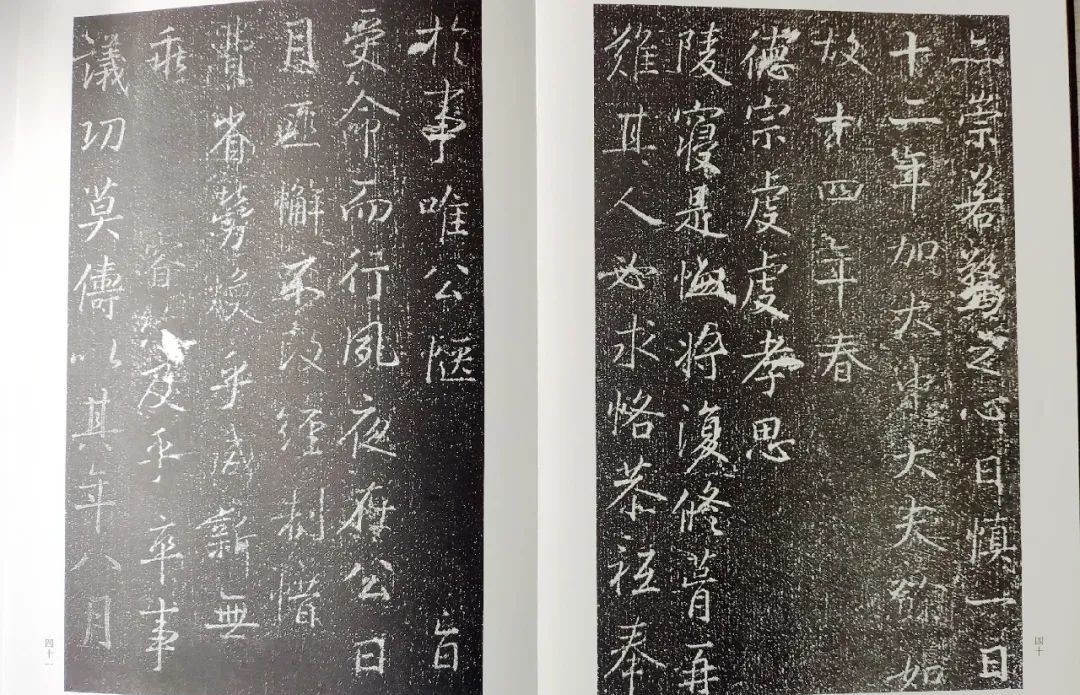 崇若驚之心日慎一日
十二年加太中大夫餘如
故十四年春
德宗虔虔孝思
陵寢是將復修葺再
難其人必求恪恭祗奉
四十
於事唯公愜旨
受命而行夙夜在公日
月匪懈不改經制惜
費省勞煥乎咸新無
乖睿及乎卒事
議功莫儔以其年八月
四十一